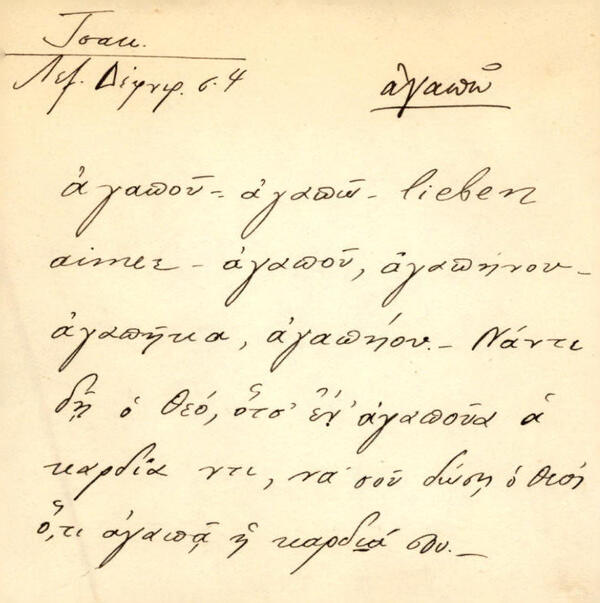 Τσακ.
Λεξ. Δέφνερ. σ. 4
ἀγαπῶ
ἀγαποῦ - ἀγαπῶ - lieben
aimer - ἀγαποῦ, ἀγαπήνου -
ἀγαπῆκα, ἀγαπήου. - Νάντι
δῇ ὁ θεό, ὅτσ' ἔν' ἀγαποῦα ἁ
καρδία ντι, νά σοῦ δώσῃ ὁ θεός
ὅ,τι ἀγαπᾷ ἡ καρδιά σου. -